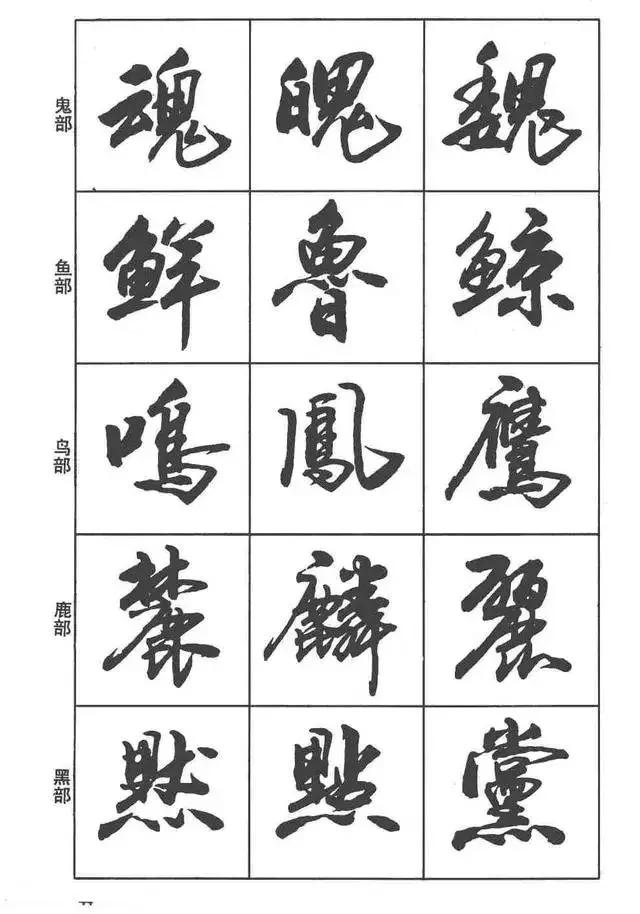 鬼部 魂 魄 魏
鱼部 鲜 魯 鲸
鸟部 鳴 鳳 鷹
鹿部 麓 麟 麗
黑部 默 點 黨